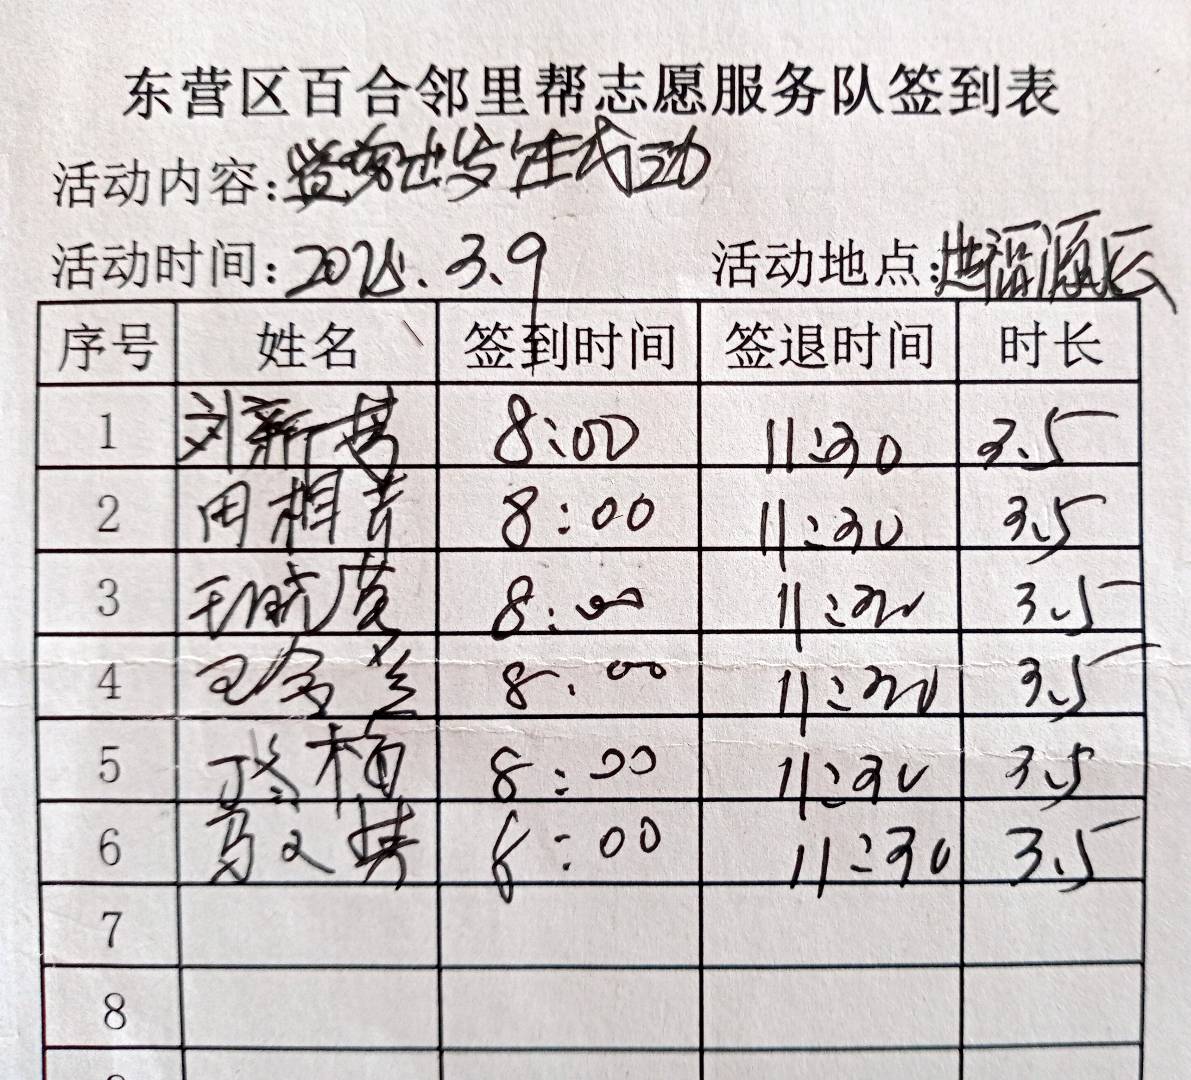 东营区百合邻里帮志愿服务队签到表
活动内容:
活动时间:2025.3.9 活动地点:福源
序号 姓名 签到时间 签退时间 时长
1 刘新 8:00 11:30 3.5
2 周相 8:00 11:30 3.5
3 王晓 8:00 11:30 3.5
4 8:00 11:30 3.5
5 丁冬梅 8:00 11:30 3.5
6 8:00 11:30 3.5
7
8